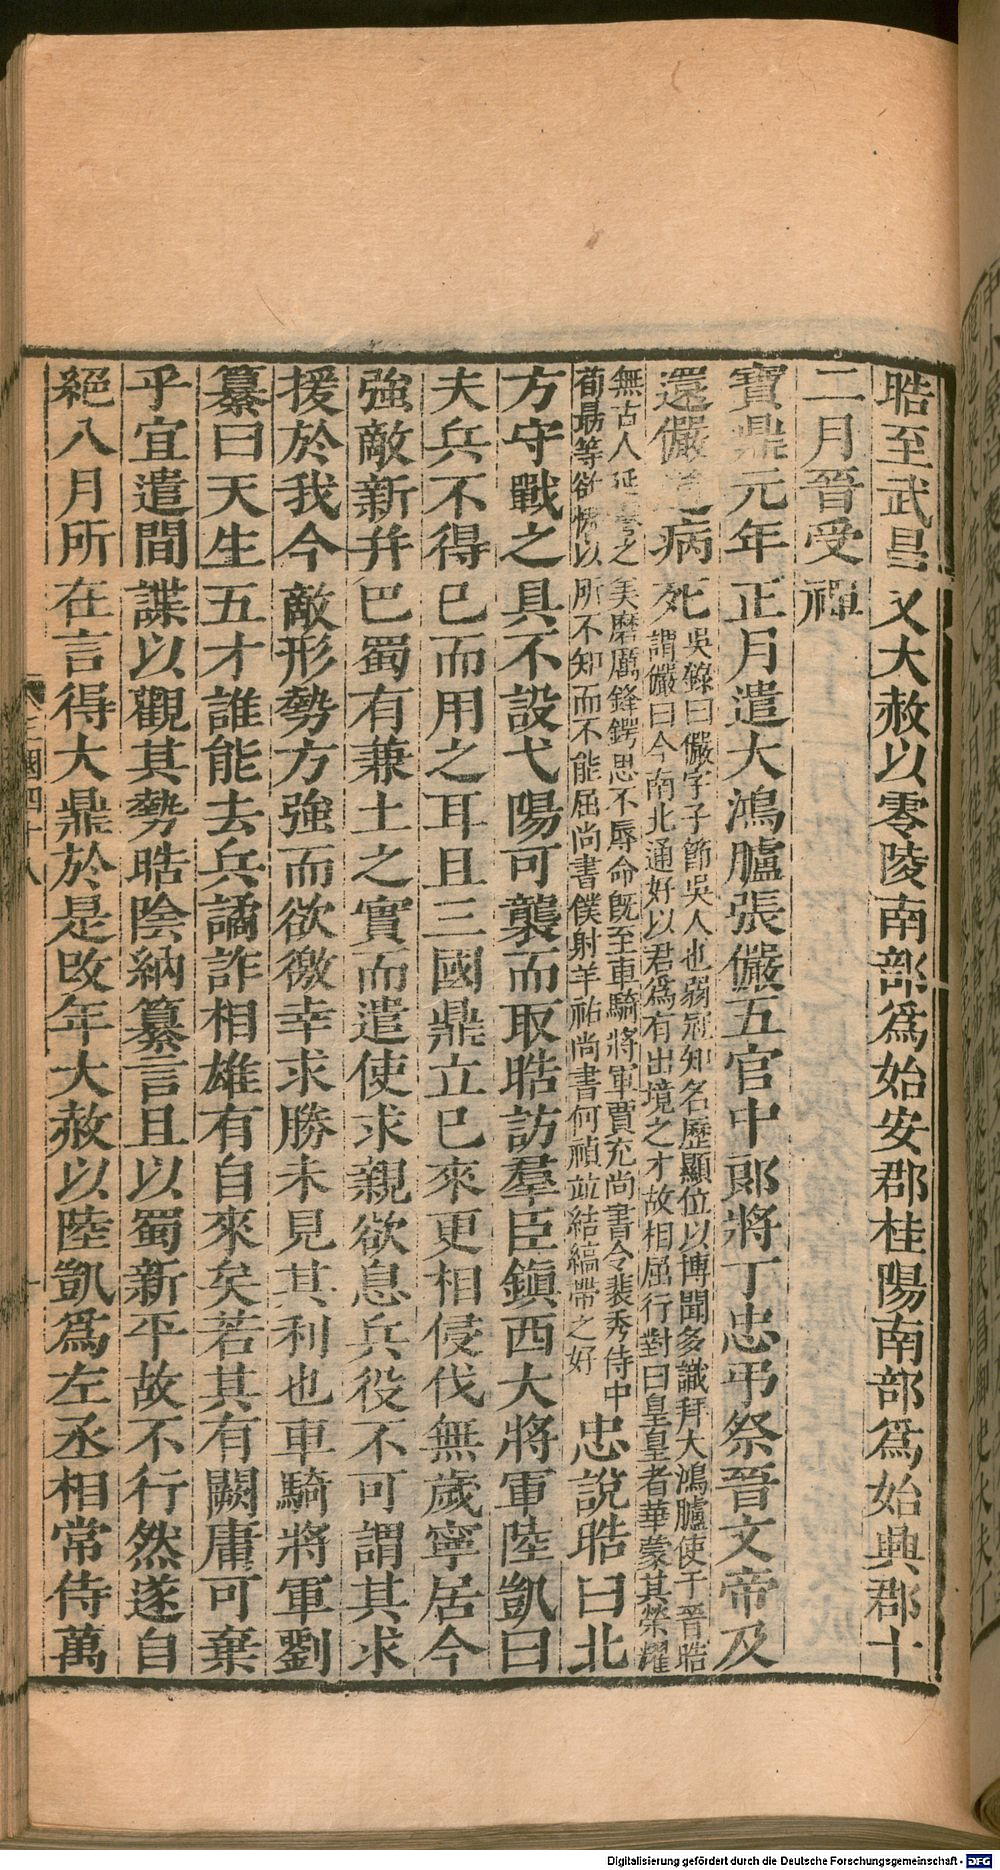 晧至武昌又大赦以零陵南部爲始安郡桂陽南部爲始興郡十
二月晉受禪
寶鼎元年正月遣大鴻臚張儼五官中郞將丁忠弔祭晉文帝及
還儼病死吳錄曰儼字子節吳人也弱冠知名歷顯位以博聞多識拜大鴻臚使于晉晧
謂儼曰今南北通好以君爲有出境之才故相屈行對曰皇皇者華蒙其榮耀
無古人延譽之美磨厲鋒鍔思不辱命旣至車騎將軍賈充尚書令裴秀侍中
荀勗等欲慠以所不知而不能屈尚書僕射羊祜尚書何禎竝結縞帶之好
忠說晧曰北
方守戰之具不設弋陽可襲而取晧訪羣臣鎭西大將軍陸凱曰
夫兵不得已而用之耳且三國鼎立已來更相侵伐無歲寧居今
強敵新幷巴蜀有兼土之實而遣使求親欲息兵役不可謂其求
援於我今敵形勢方強而欲徼幸求勝未見其利也車騎將軍劉
纂曰天生五才誰能去兵譎詐相雄有自來矣若其有闕庸可棄
乎宜遣間諜以觀其勢晧陰納纂言且以蜀新平故不行然遂自
絕八月所在言得大鼎於是改年大赦以陸凱爲左丞相常侍萬
三國四十八
Digitalisierung gefördert durch die Deutsche Forschungsgemeinschaft - DFG